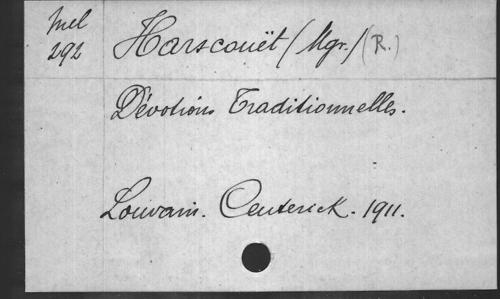 Mel
292
Harscouët / Mgr. / (R.)
Dévotions Traditionnelles.
Louvain. Ceuterick. 1911.